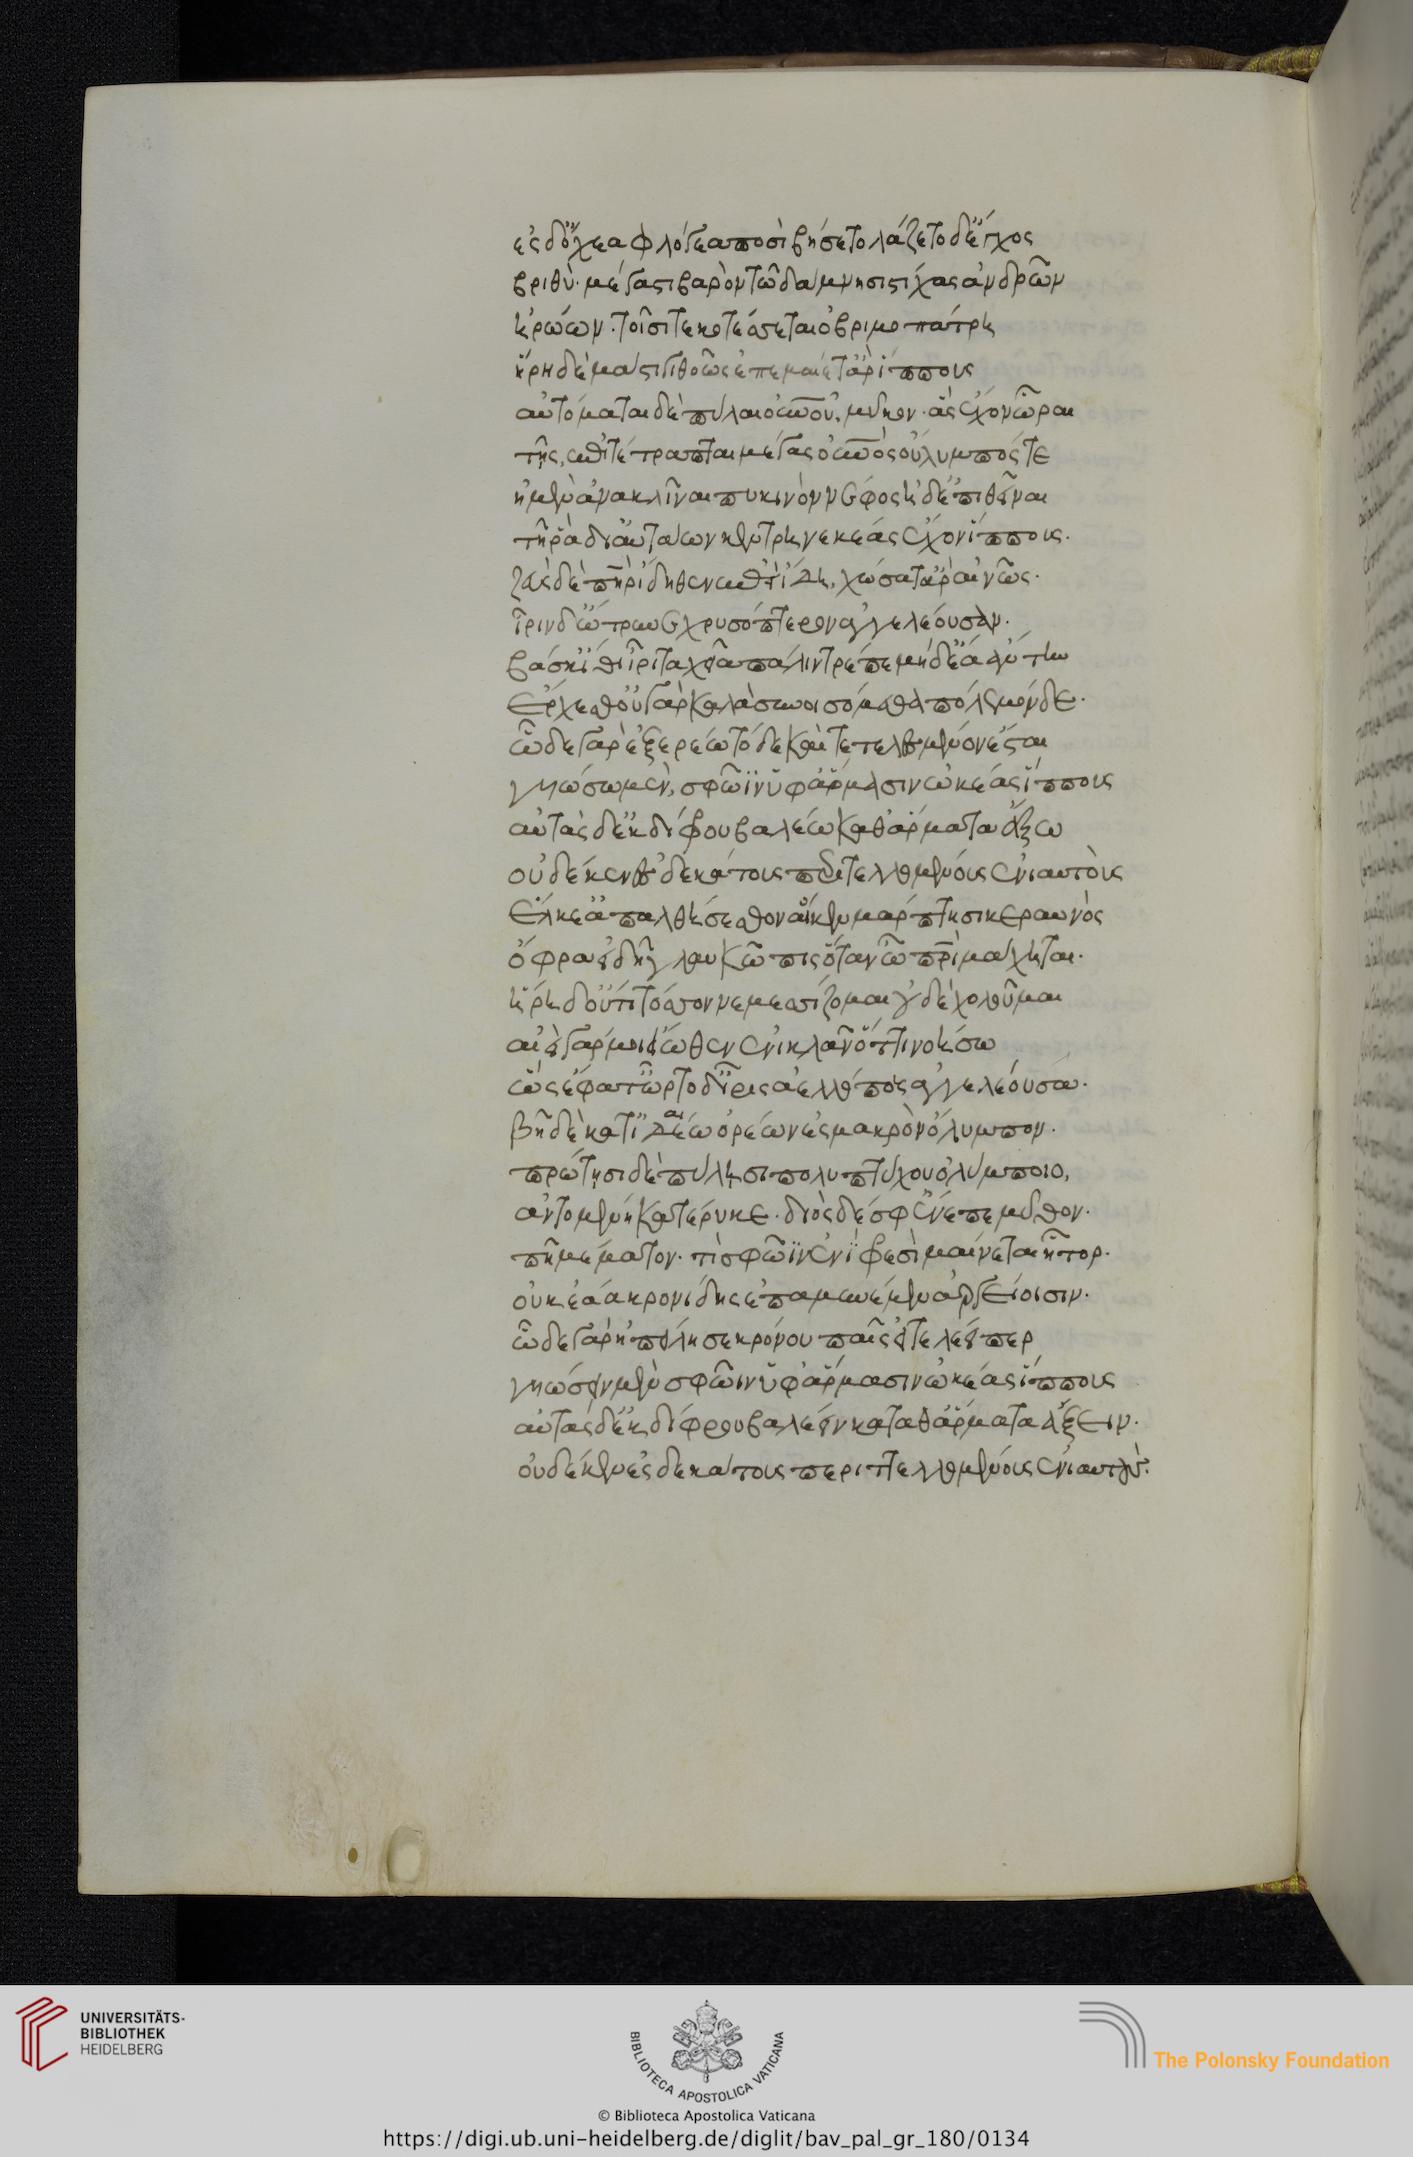 ἐς δ' ὄχεα φλόγεα ποσὶ βήσετο λάζετο δ' ἔγχος
βριθὺ· μέγα στιβαρὸν τῶ δάμνησι στίχας ἀνδρῶν
ἡρώων· τοῖσί τε κοτέσσεται ὀβριμοπάτρη
ἥρη δὲ μάστιγι θοῶς ἐπεμαίετ' ἂρ ἵππους
αὐτόμαται δὲ πύλαι οὐρανοῦ, μύκον· ἃς ἔχον ὧραι
τῆς, ἐπιτέτραπται μέγας οὐρανὸς οὔλυμπός τε
ἠμὲν ἀνακλῖναι πυκινὸν νέφος ἠδ' ἐπιθεῖναι
τῆ ῥα δι' αὐτάων κεντρηνεκέας ἔχον ἵππους.
ζεὺς δὲ πατὴρ ἴδηθεν ἐπεὶ ἴδε, χώσατ' ἂρ αἰνῶς·
ἶριν δ' ὤτρυνε χρυσόπτερον ἀγγελέουσαν.
βάσκ' ἴθι ἶρι ταχεῖα πάλιν τρέπε μηδ' ἔα ἄντην
ἔρχεσθ' οὐ γὰρ καλὰ συνοισόμεθα πόλεμόνδε·
ὧδε γὰρ ἐξερέω τὸ δὲ καὶ τετελεσμένον ἔσται
γυιώσω μὲν, σφῶϊν ὑφ' ἅρμασιν ὠκέας ἵππους
αὐτὰς δ' ἐκ δίφρου βαλέω καθ' ἅρματα ἄξω
οὐδέ κεν ἐς δεκάτους περιτελλομένους ἐνιαυτοὺς
ἕλκε' ἀπαλθήσεσθον ἅ κεν μάρπτησι κεραυνὸς
ὄφρα εἰδῆ γλαυκῶπις ὅταν ὧ πατρὶ μάχηται.
ἥρη δ' οὔτι τόσον νεμεσίζομαι οὐδὲ χολοῦμαι
αἰεὶ γάρ μοι ἔωθεν ἐνικλᾶν ὅττι νοήσω
ὣς ἔφατ' ὦρτο δ' ἶρις ἀελλόπος ἀγγελέουσα·
βῆ δὲ κατ' ἰδαίων ὀρέων ἐς μακρὸν ὄλυμπον·
πρώτησι δὲ πύλησι πολυπτύχου ὀλύμποιο,
ἀντομένη κατέρυκε· διὸς δέ σφ' ἔννεπε μῦθον·
πῆ μέματον· τί σφῶϊν ἐνὶ φρεσὶ μαίνεται ἦτορ.
οὐκ ἐάα κρονίδης ἐπαμυνέμεν ἀργείοισιν.
ὧδε γὰρ ἠπείλησε κρόνου παῖς εἰ τελέει περ
γυιώσειν μὲν σφῶιν ὑφ' ἅρμασιν ὠκέας ἵππους
αὐτὰς δ' ἐκ δίφρου βαλέειν κατά θ' ἅρματα ἄξειν.
οὐδέ κεν ἐς δεκάτους περιτελλομένους ἐνιαυτοὺς.
UNIVERSITÄTS-
BIBLIOTHEK
HEIDELBERG
BIBLIOTECA APOSTOLICA VATICANA
The Polonsky Foundation
© Biblioteca Apostolica Vaticana
https://digi.ub.uni-heidelberg.de/diglit/bav_pal_gr_180/0134